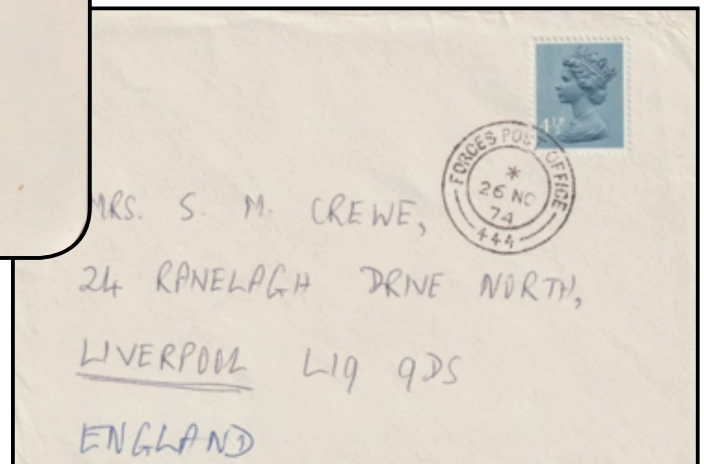 4½P
FORCES POST OFFICE
*
26 NO
74
444
MRS. S. M. CREWE,
24 RANELAGH DRIVE NORTH,
LIVERPOOL L19 9DS
ENGLAND